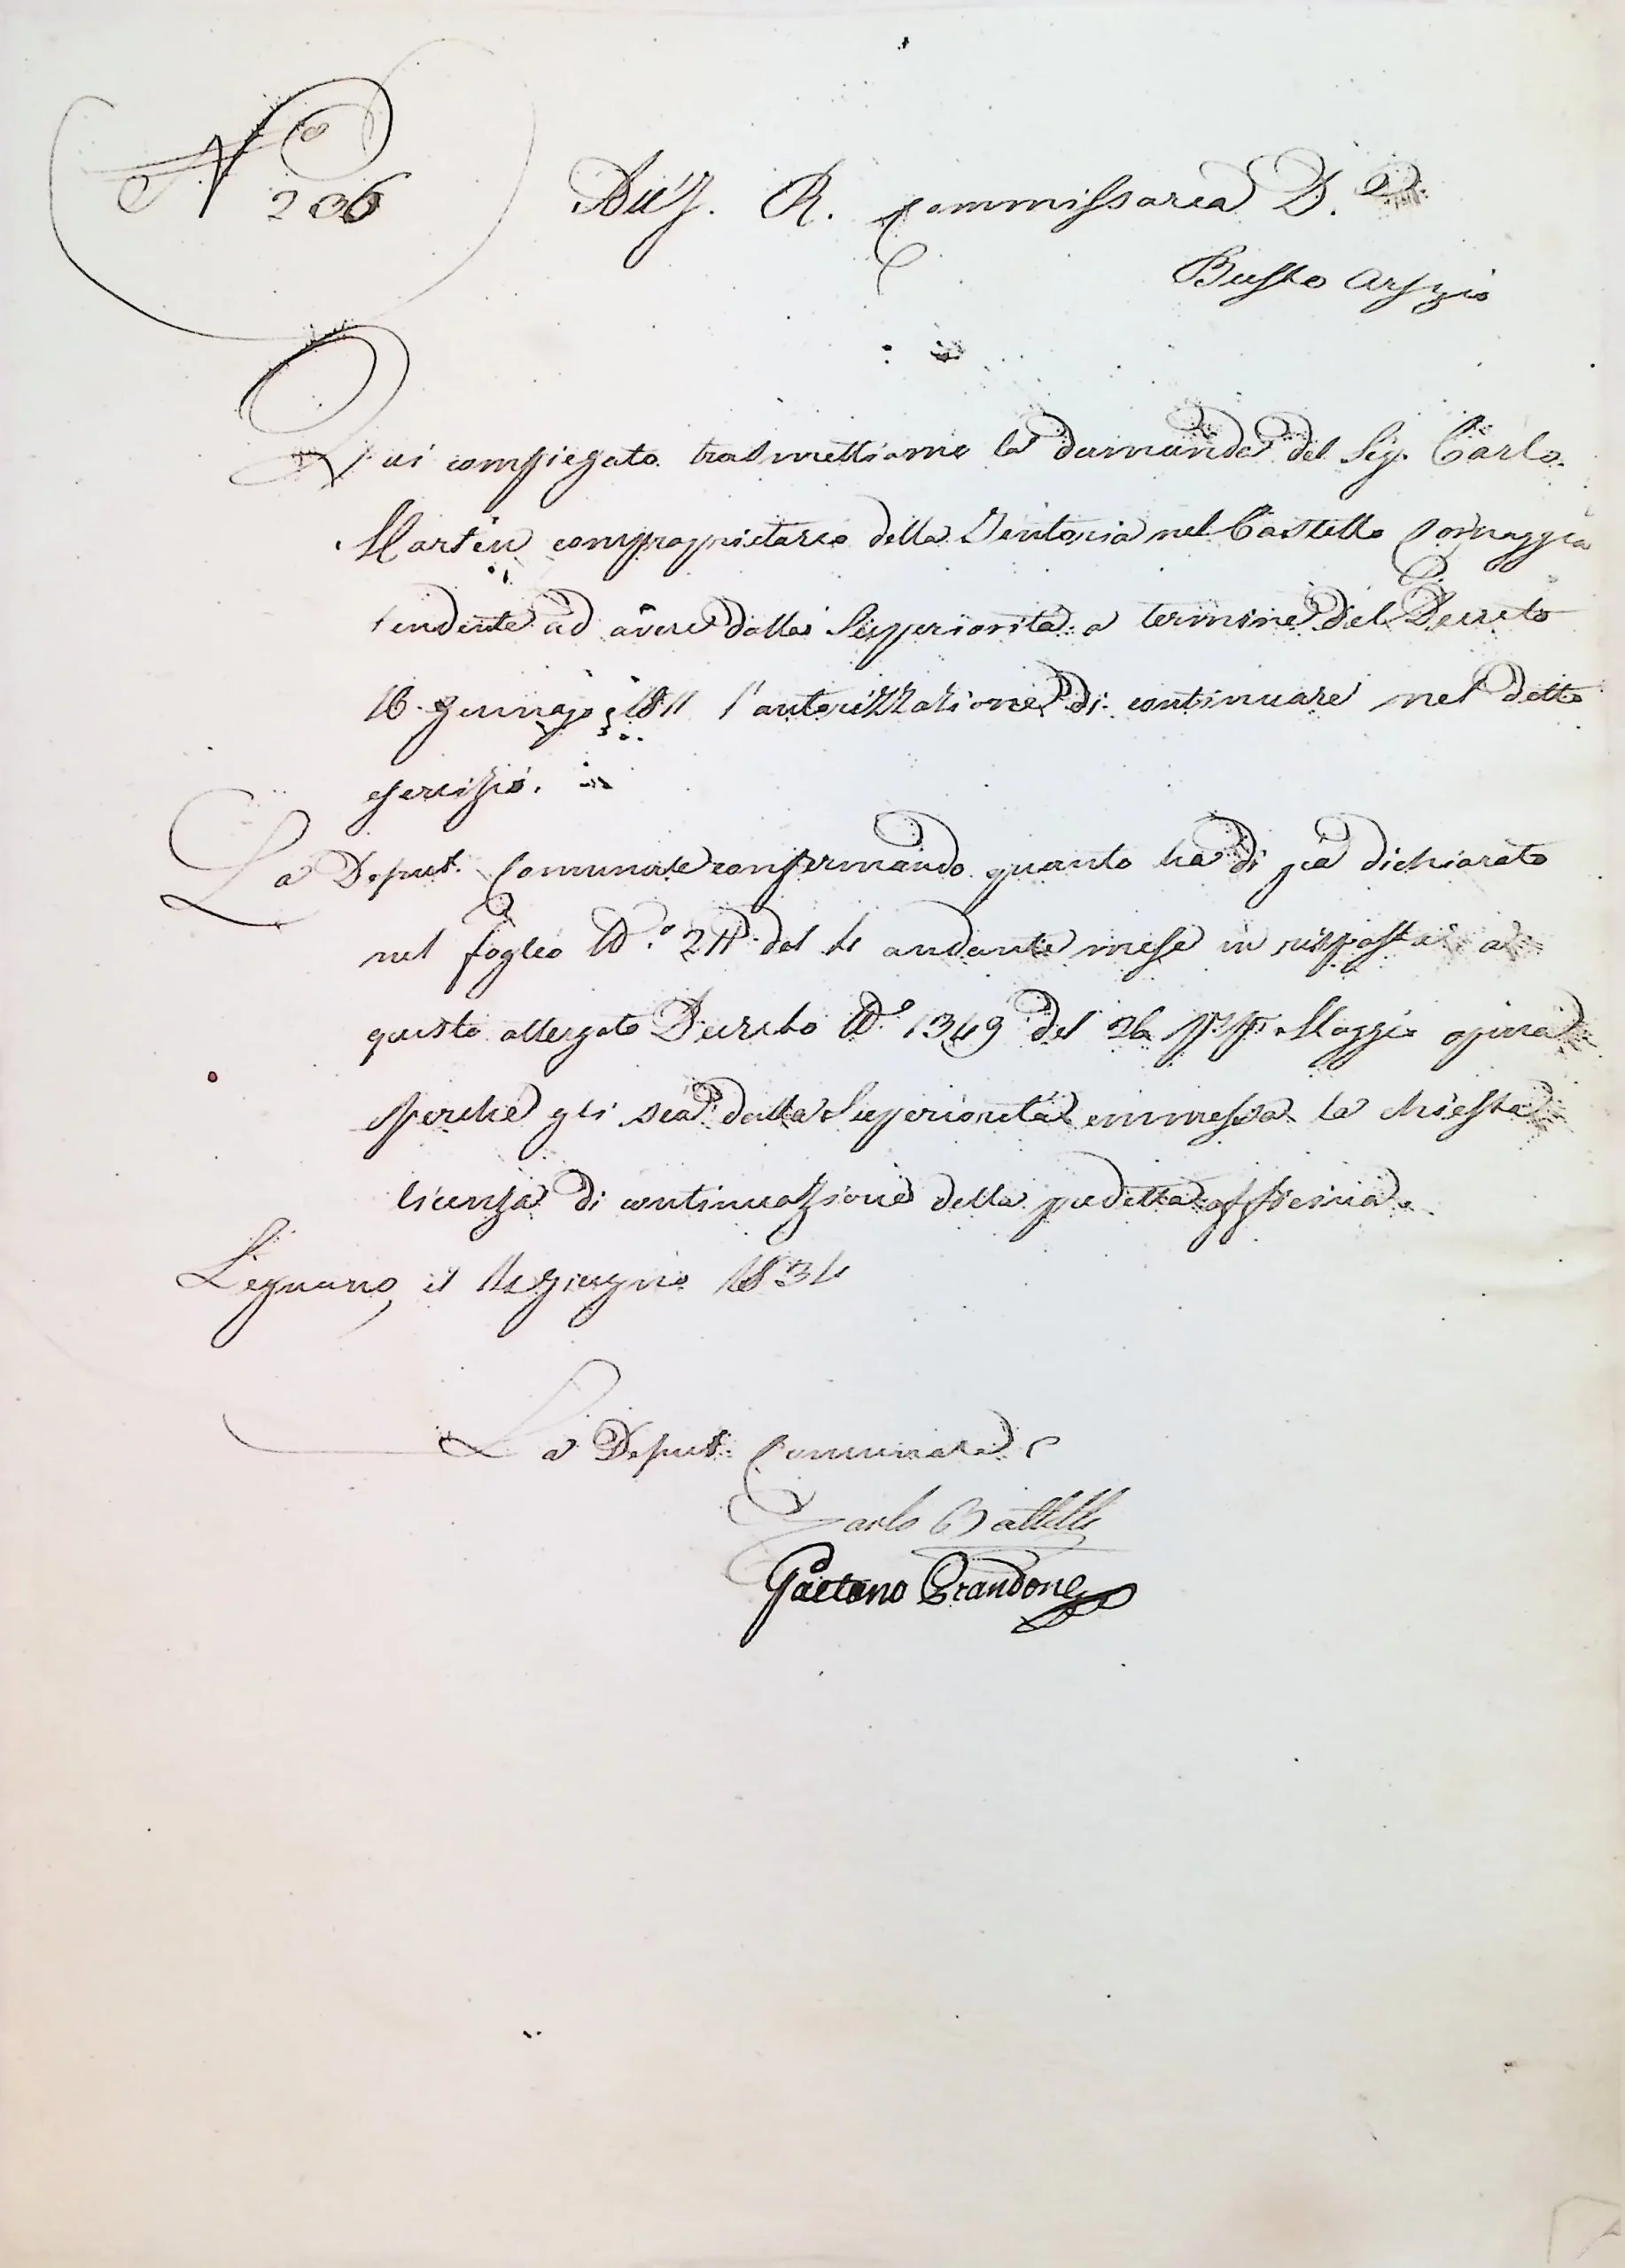 N.o 206
All'I. R. Commissaria D.
Busto Arsizio
Qui compiegato trasmettiamo la dumanda del Sig. Carlo
Martin comproprietario della Tintoria nel Castello Cornaggia
tendente ad avere dalla Superiorità a termine del Decreto
16 gennajo 1811 l'autorizzazione di continuare nel detto
esercizio.
La Deput. Comunale confermando quanto ha di già dichiarato
nel foglio N.o 211 del 4 andante mese in risposta a
questo allegato Decreto N.o 1349 del 26 p.p. Maggio opina
perchè gli sia dalla Superiorità emmessa la chiesta
licenza di continuazione della predetta officina.
Legnano, il giugno 1834
La Deput. Comunale
Carlo
Gaetano